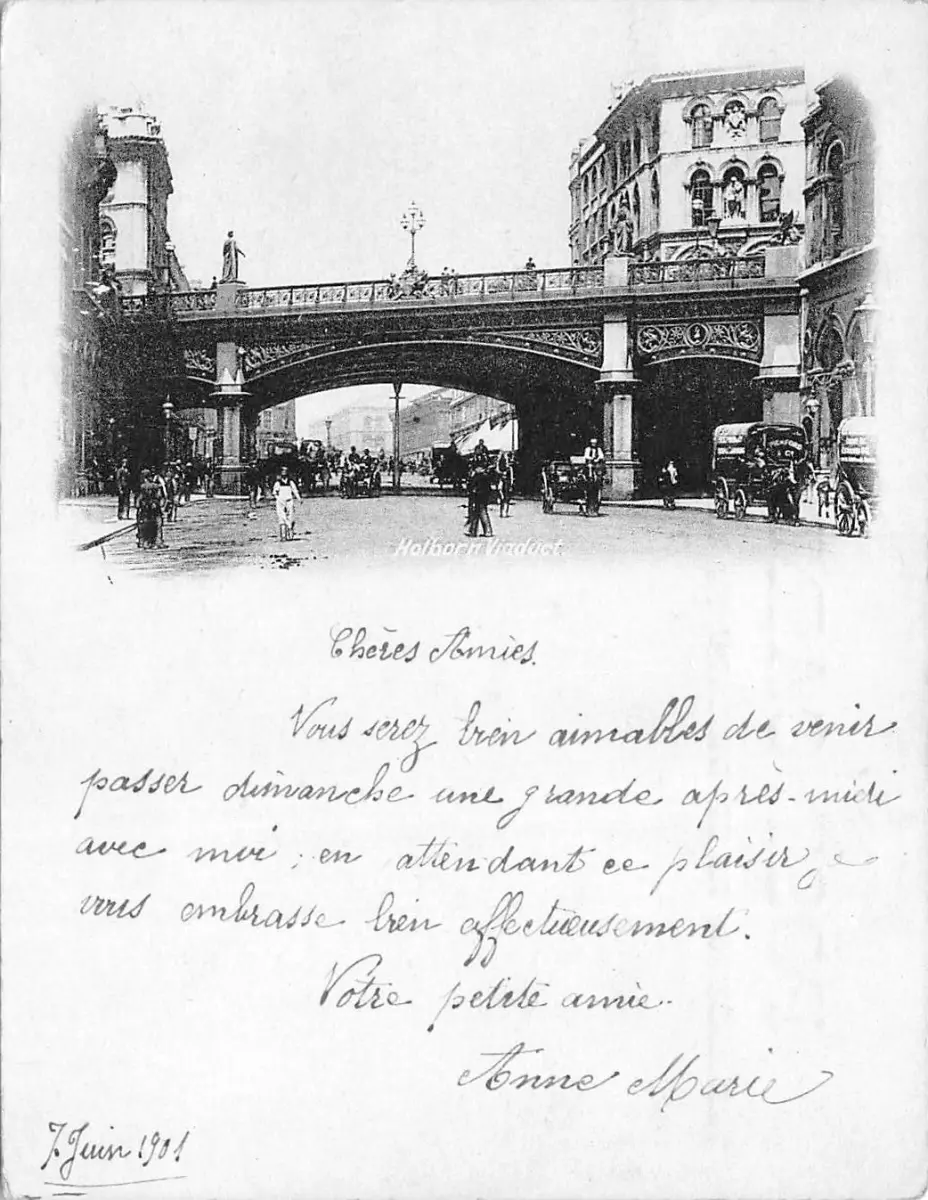 Holborn Viaduct
Chères Amies.
Vous serez bien aimables de venir
passer dimanche une grande après-midi
avec moi ; en attendant ce plaisir je
vous embrasse bien affectueusement.
Votre petite amie.
Anne Marie
7. Juin 1901